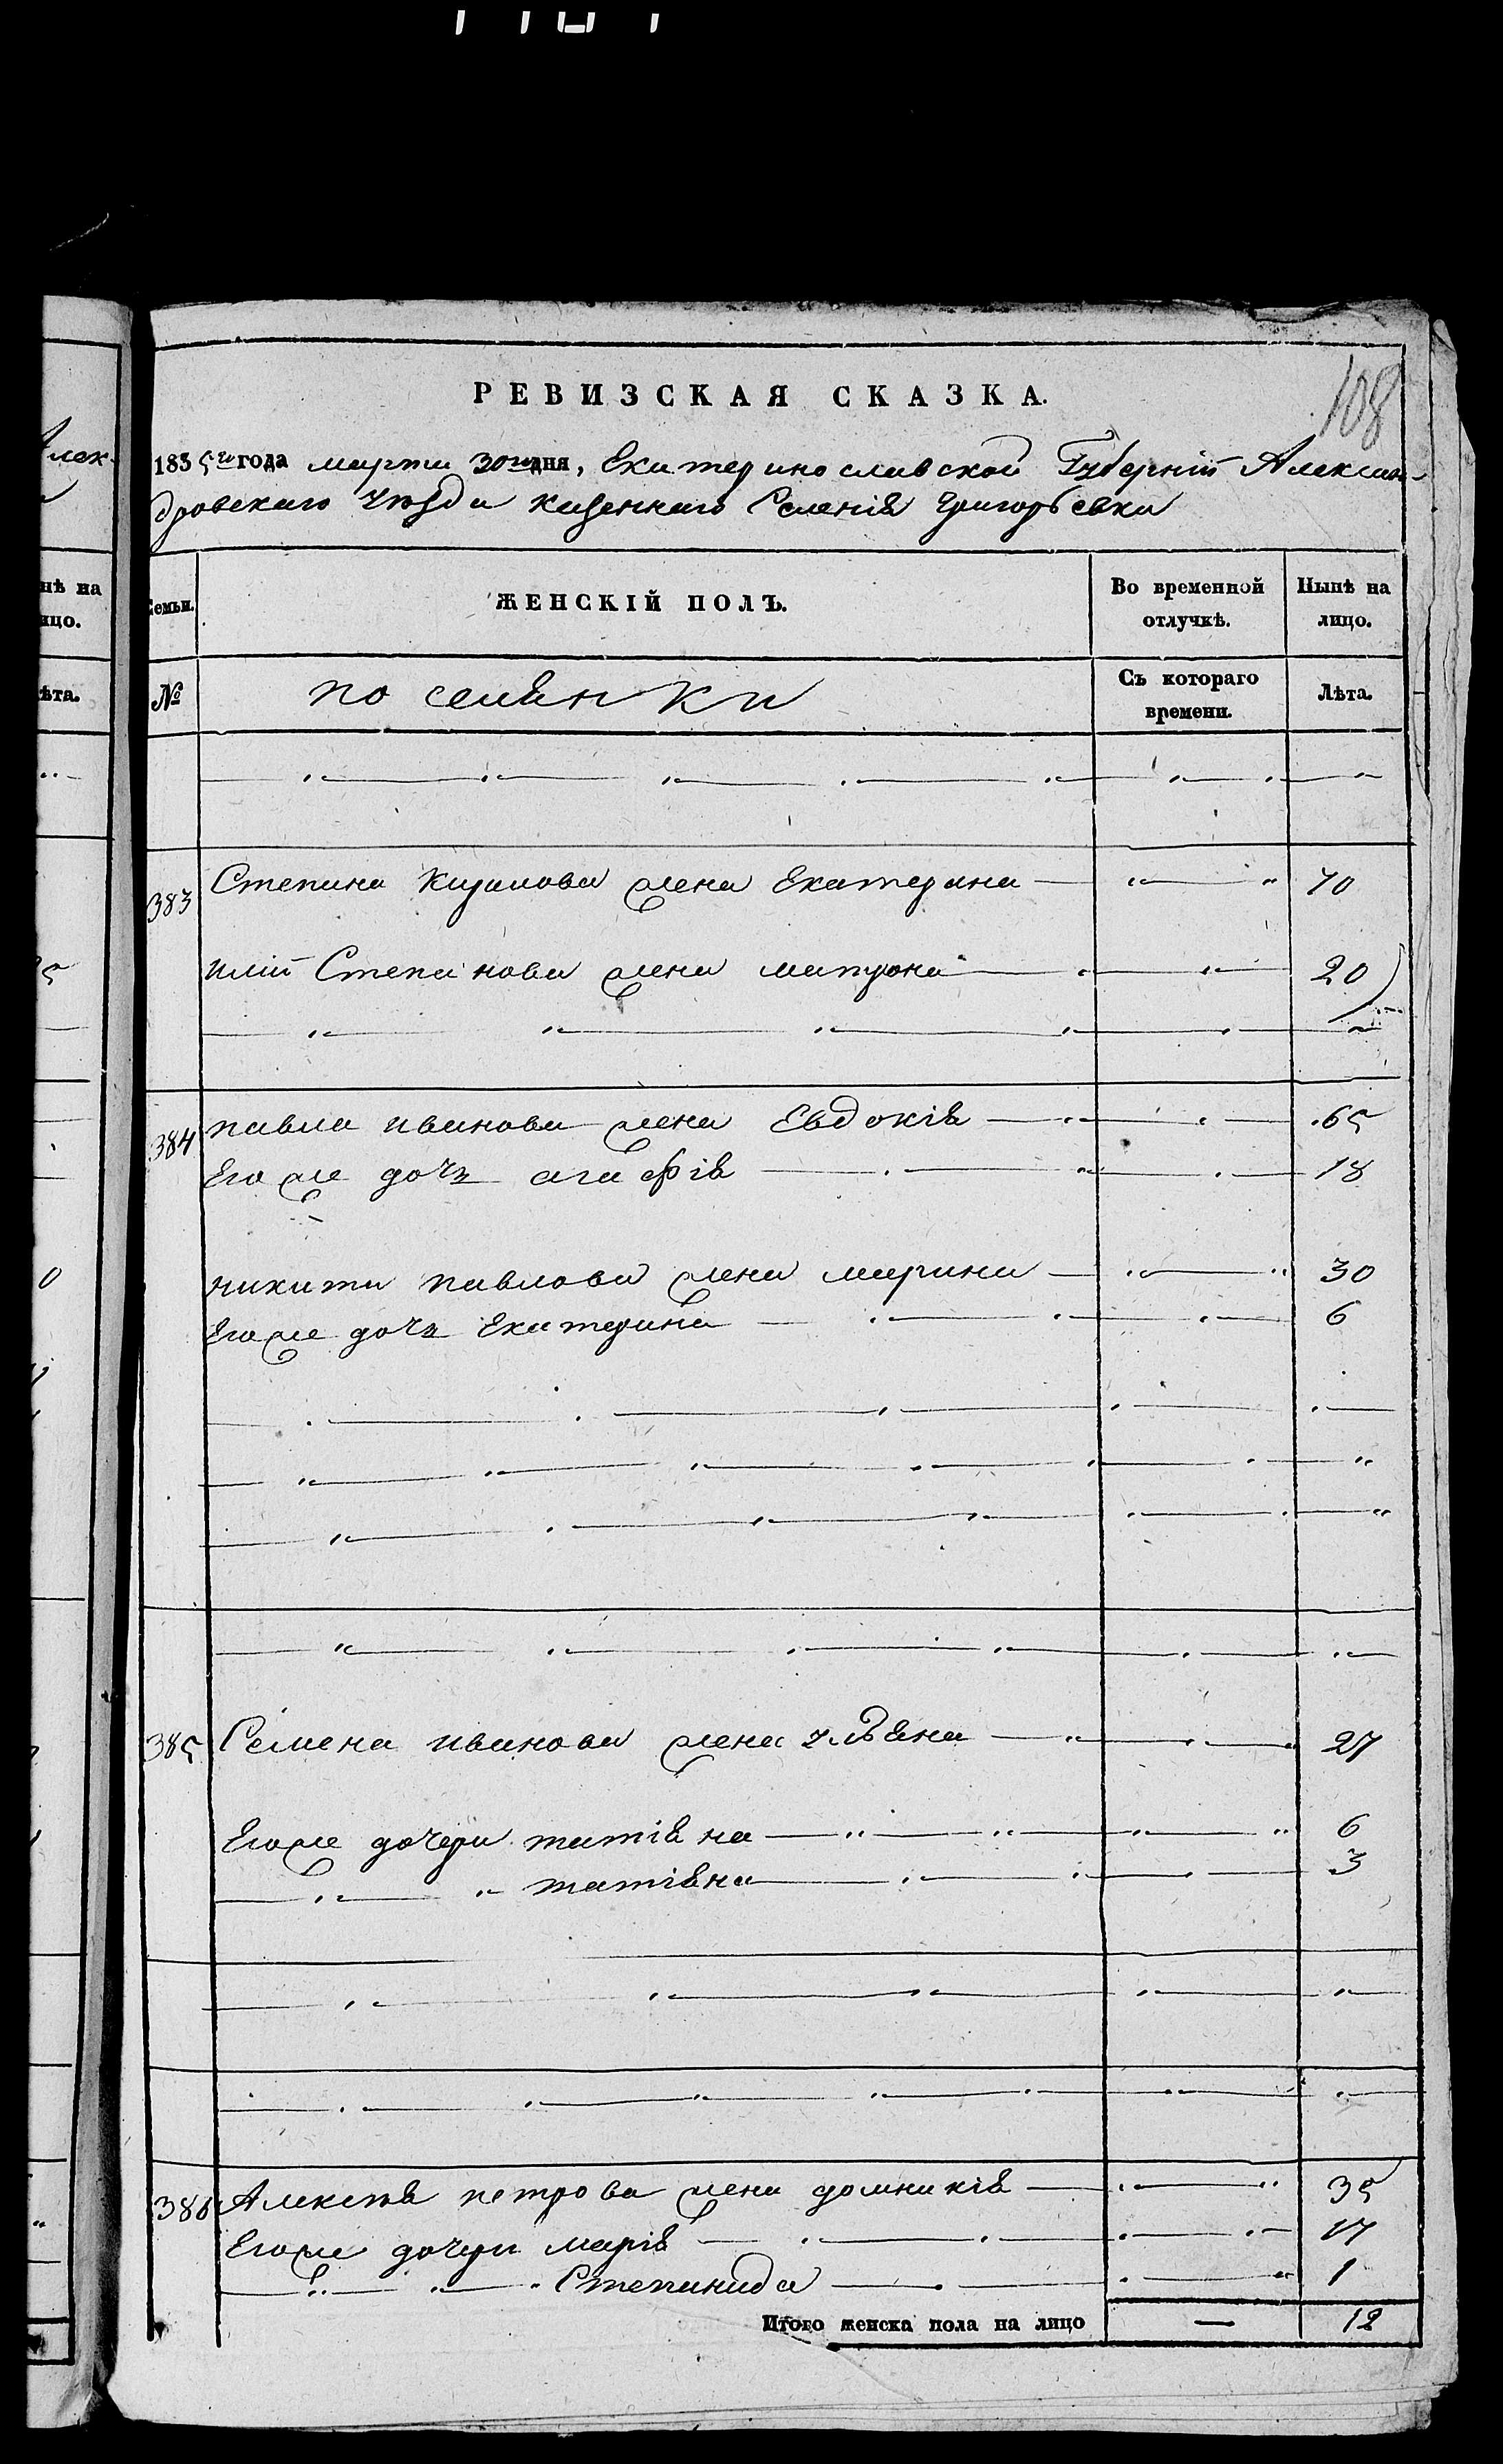 108
РЕВИЗСКАЯ СКАЗКА.
1835го года марта 30го дня, Екатеринославской Губерніи Алексан-
дровскаго Уѣзда казеннаго Селенія Григорьевки
Семьи. ЖЕНСКІЙ ПОЛЪ. Во временной отлучкѣ. Нынѣ на лицо.
№ поселянки Съ котораго времени. Лѣта.
383 Степана жена Екатерина 70
Степанова жена матрона 20
384 павла иванова жена Евдокія 65
Его же дочь агафія 18
никиты павлова жена марина 30
Его же дочь Екатерина 6
385 Семена иванова жена ульяна 27
Его же дочери татіяна 6
татіяна 3
386 Алексѣя петрова жена домникія 35
Его же дочери марія 17
Степанида 1
Итого женска пола на лицо — 12
Алек-
нѣ на
ицо.
ѣта.